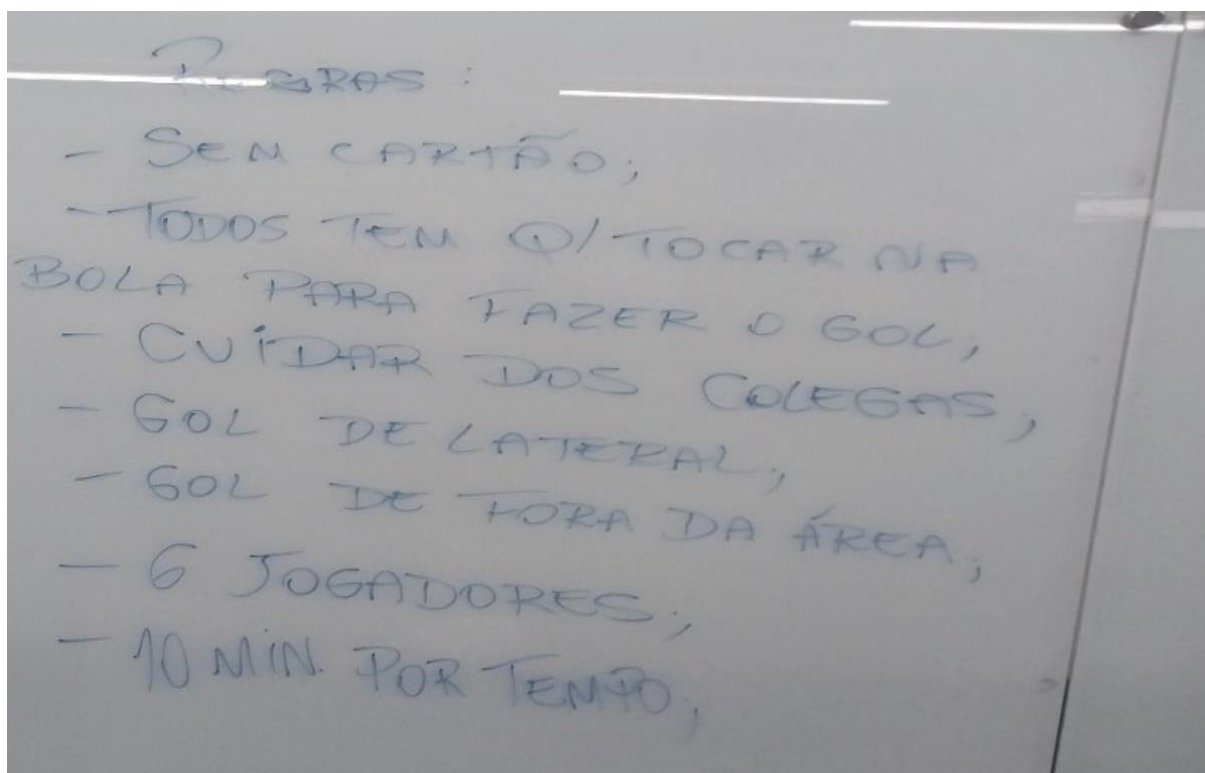 REGRAS:
- SEM CARTÃO;
- TODOS TEM Q/ TOCAR NA
BOLA PARA FAZER O GOL;
- CUIDAR DOS COLEGAS;
- GOL DE LATERAL;
- GOL DE FORA DA ÁREA;
- 6 JOGADORES;
- 10 MIN. POR TEMPO;